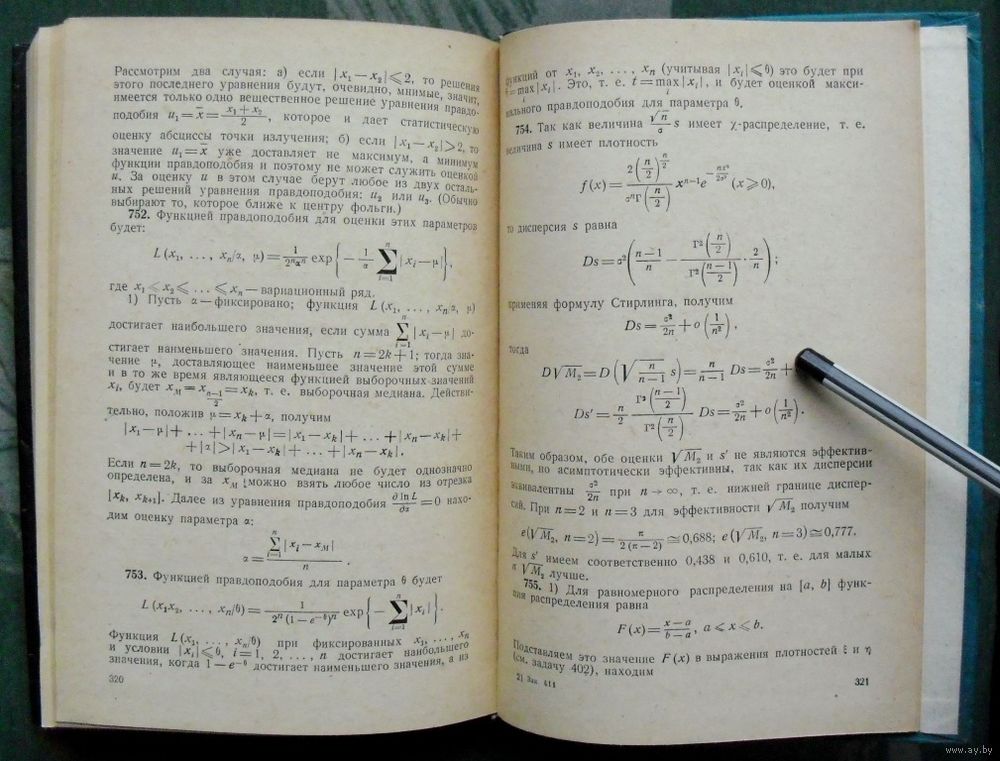 Рассмотрим два случая: а) если |x₁ — x₂| ⩽ 2, то решения
этого последнего уравнения будут, очевидно, мнимые, значит,
имеется только одно вещественное решение уравнения правдо-
подобия u₁ = x̄ = (x₁ + x₂)/2, которое и дает статистическую
оценку абсциссы точки излучения; б) если |x₁ — x₂| > 2, то
значение u₁ = x̄ уже доставляет не максимум, а минимум
функции правдоподобия и поэтому не может служить оценкой
u. За оценку u в этом случае берут любое из двух осталь-
ных решений уравнения правдоподобия: u₂ или u₃. (Обычно
выбирают то, которое ближе к центру фольги.)
752. Функцией правдоподобия для оценки этих параметров
будет:
L(x₁, ..., xₙ/α, μ) = 1/(2ⁿαⁿ) exp{— 1/α ∑ᵢ₌₁ⁿ |xᵢ — μ|},
где x₁ ⩽ x₂ ⩽ ... ⩽ xₙ — вариационный ряд.
1) Пусть α — фиксировано; функция L(x₁, ..., xₙ/α, μ)
достигает наибольшего значения, если сумма ∑ᵢ₌₁ⁿ |xᵢ — μ| до-
стигает наименьшего значения. Пусть n = 2k + 1; тогда зна-
чение μ, доставляющее наименьшее значение этой сумме
и в то же время являющееся функцией выборочных значений
xᵢ, будет x_M = x_((n—1)/2) = xₖ, т. е. выборочная медиана. Действи-
тельно, положив μ = xₖ + α, получим
|x₁ — μ| + ... + |xₙ — μ| = |x₁ — xₖ| + ... + |xₙ — xₖ| +
+ |α| > |x₁ — xₖ| + ... + |xₙ — xₖ|.
Если n = 2k, то выборочная медиана не будет однозначно
определена, и за x_M можно взять любое число из отрезка
[xₖ, xₖ₊₁]. Далее из уравнения правдоподобия ∂ ln L/∂α = 0 нахо-
дим оценку параметра α:
α = ∑ᵢ₌₁ⁿ |xᵢ — x_M| / n.
753. Функцией правдоподобия для параметра θ будет
L(x₁x₂, ..., xₙ/θ) = 1/(2ⁿ(1 — e^(—θ))ⁿ) exp{— ∑ᵢ₌₁ⁿ |xᵢ|}.
Функция L(x₁, ..., xₙ/θ) при фиксированных x₁, ..., xₙ
и условии |xᵢ| ⩽ θ, i = 1, 2, ..., n достигает наибольшего
значения, когда 1 — e^(—θ) достигает наименьшего значения, а из
320
функций от x₁, x₂, ..., xₙ (учитывая |xᵢ| ⩽ θ) это будет при
θ = max|xᵢ|. Это, т. е. t = max|xᵢ|, и будет оценкой макси-
мального правдоподобия для параметра θ.
754. Так как величина √n/σ s имеет χ-распределение, т. е.
величина s имеет плотность
f(x) = 2(n/2)^(n/2) / (σⁿΓ(n/2)) xⁿ⁻¹e^(—nx²/2σ²) (x ⩾ 0),
то дисперсия s равна
Ds = σ²((n — 1)/n — Γ²(n/2)/Γ²((n — 1)/2) · 2/n);
применяя формулу Стирлинга, получим
Ds = σ²/2n + o(1/n²),
тогда
D√M₂ = D(√(n/(n — 1)) s) = n/(n — 1) Ds = σ²/2n +
Ds′ = n/2 Γ²((n — 1)/2)/Γ²(n/2) Ds = σ²/2n + o(1/n²).
Таким образом, обе оценки √M₂ и s′ не являются эффектив-
ными, но асимптотически эффективны, так как их дисперсии
эквивалентны σ²/2n при n → ∞, т. е. нижней границе диспер-
сий. При n = 2 и n = 3 для эффективности √M₂ получим
e(√M₂, n = 2) = π/(2(π — 2)) ≅ 0,688; e(√M₂, n = 3) ≅ 0,777.
Для s′ имеем соответственно 0,438 и 0,610, т. е. для малых
n √M₂ лучше.
755. 1) Для равномерного распределения на [a, b] функ-
ция распределения равна
F(x) = (x — a)/(b — a), a ⩽ x ⩽ b.
Подставляем это значение F(x) в выражения плотностей ξ и η
(см. задачу 402), находим
21 Зак. 414
321
www.ay.by